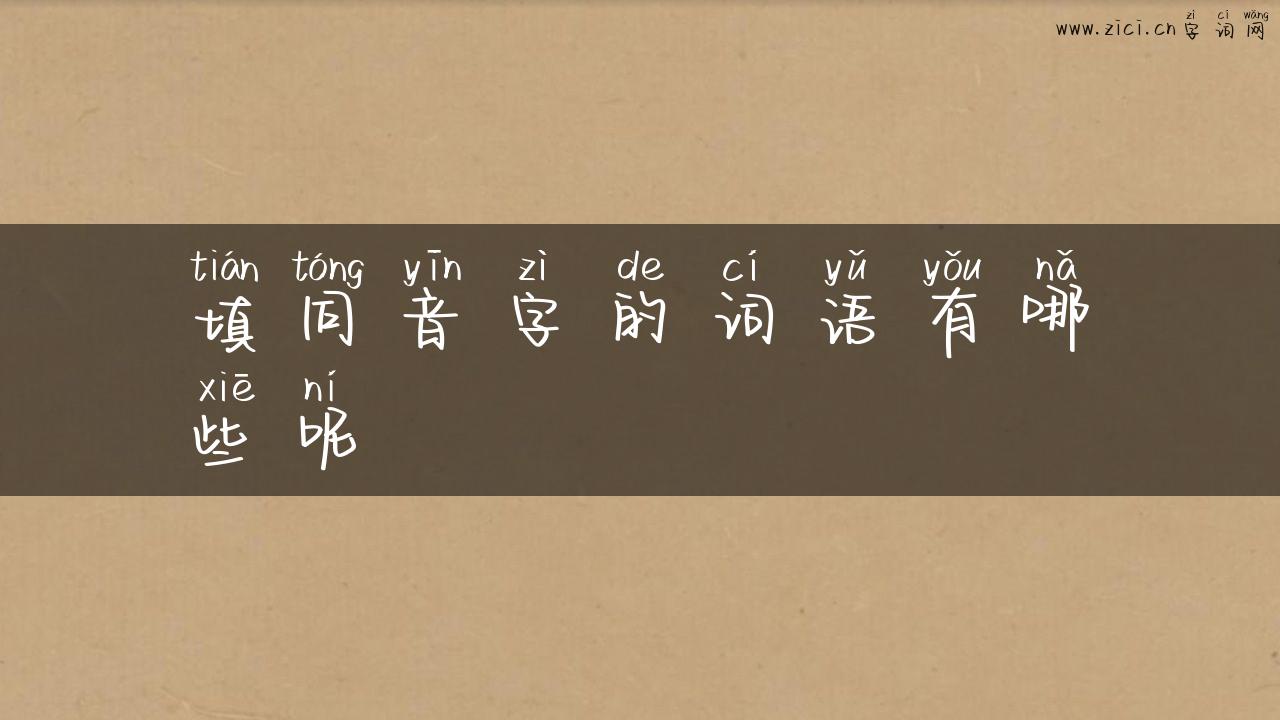 zì cí wǎng
www.zici.cn 字 词 网
tián tóng yīn zì de cí yǔ yǒu nǎ
填 同 音 字 的 词 语 有 哪
xiē ní
些 呢